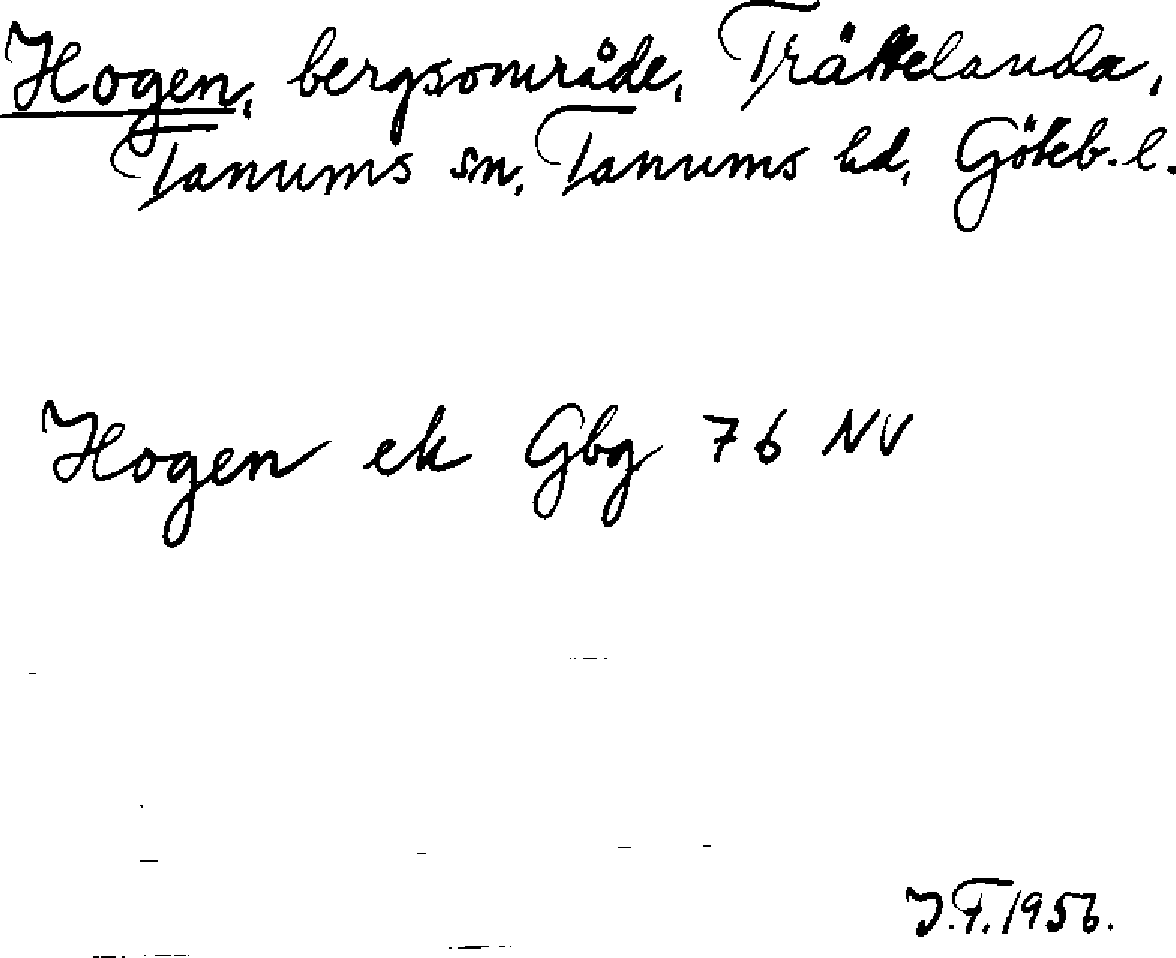 Hogen, bergsområde, Trättelanda,
Tanums sn, Tanums hd, Göteb. l.
Hogen ek Gbg 76 NV
J.F. 1956.